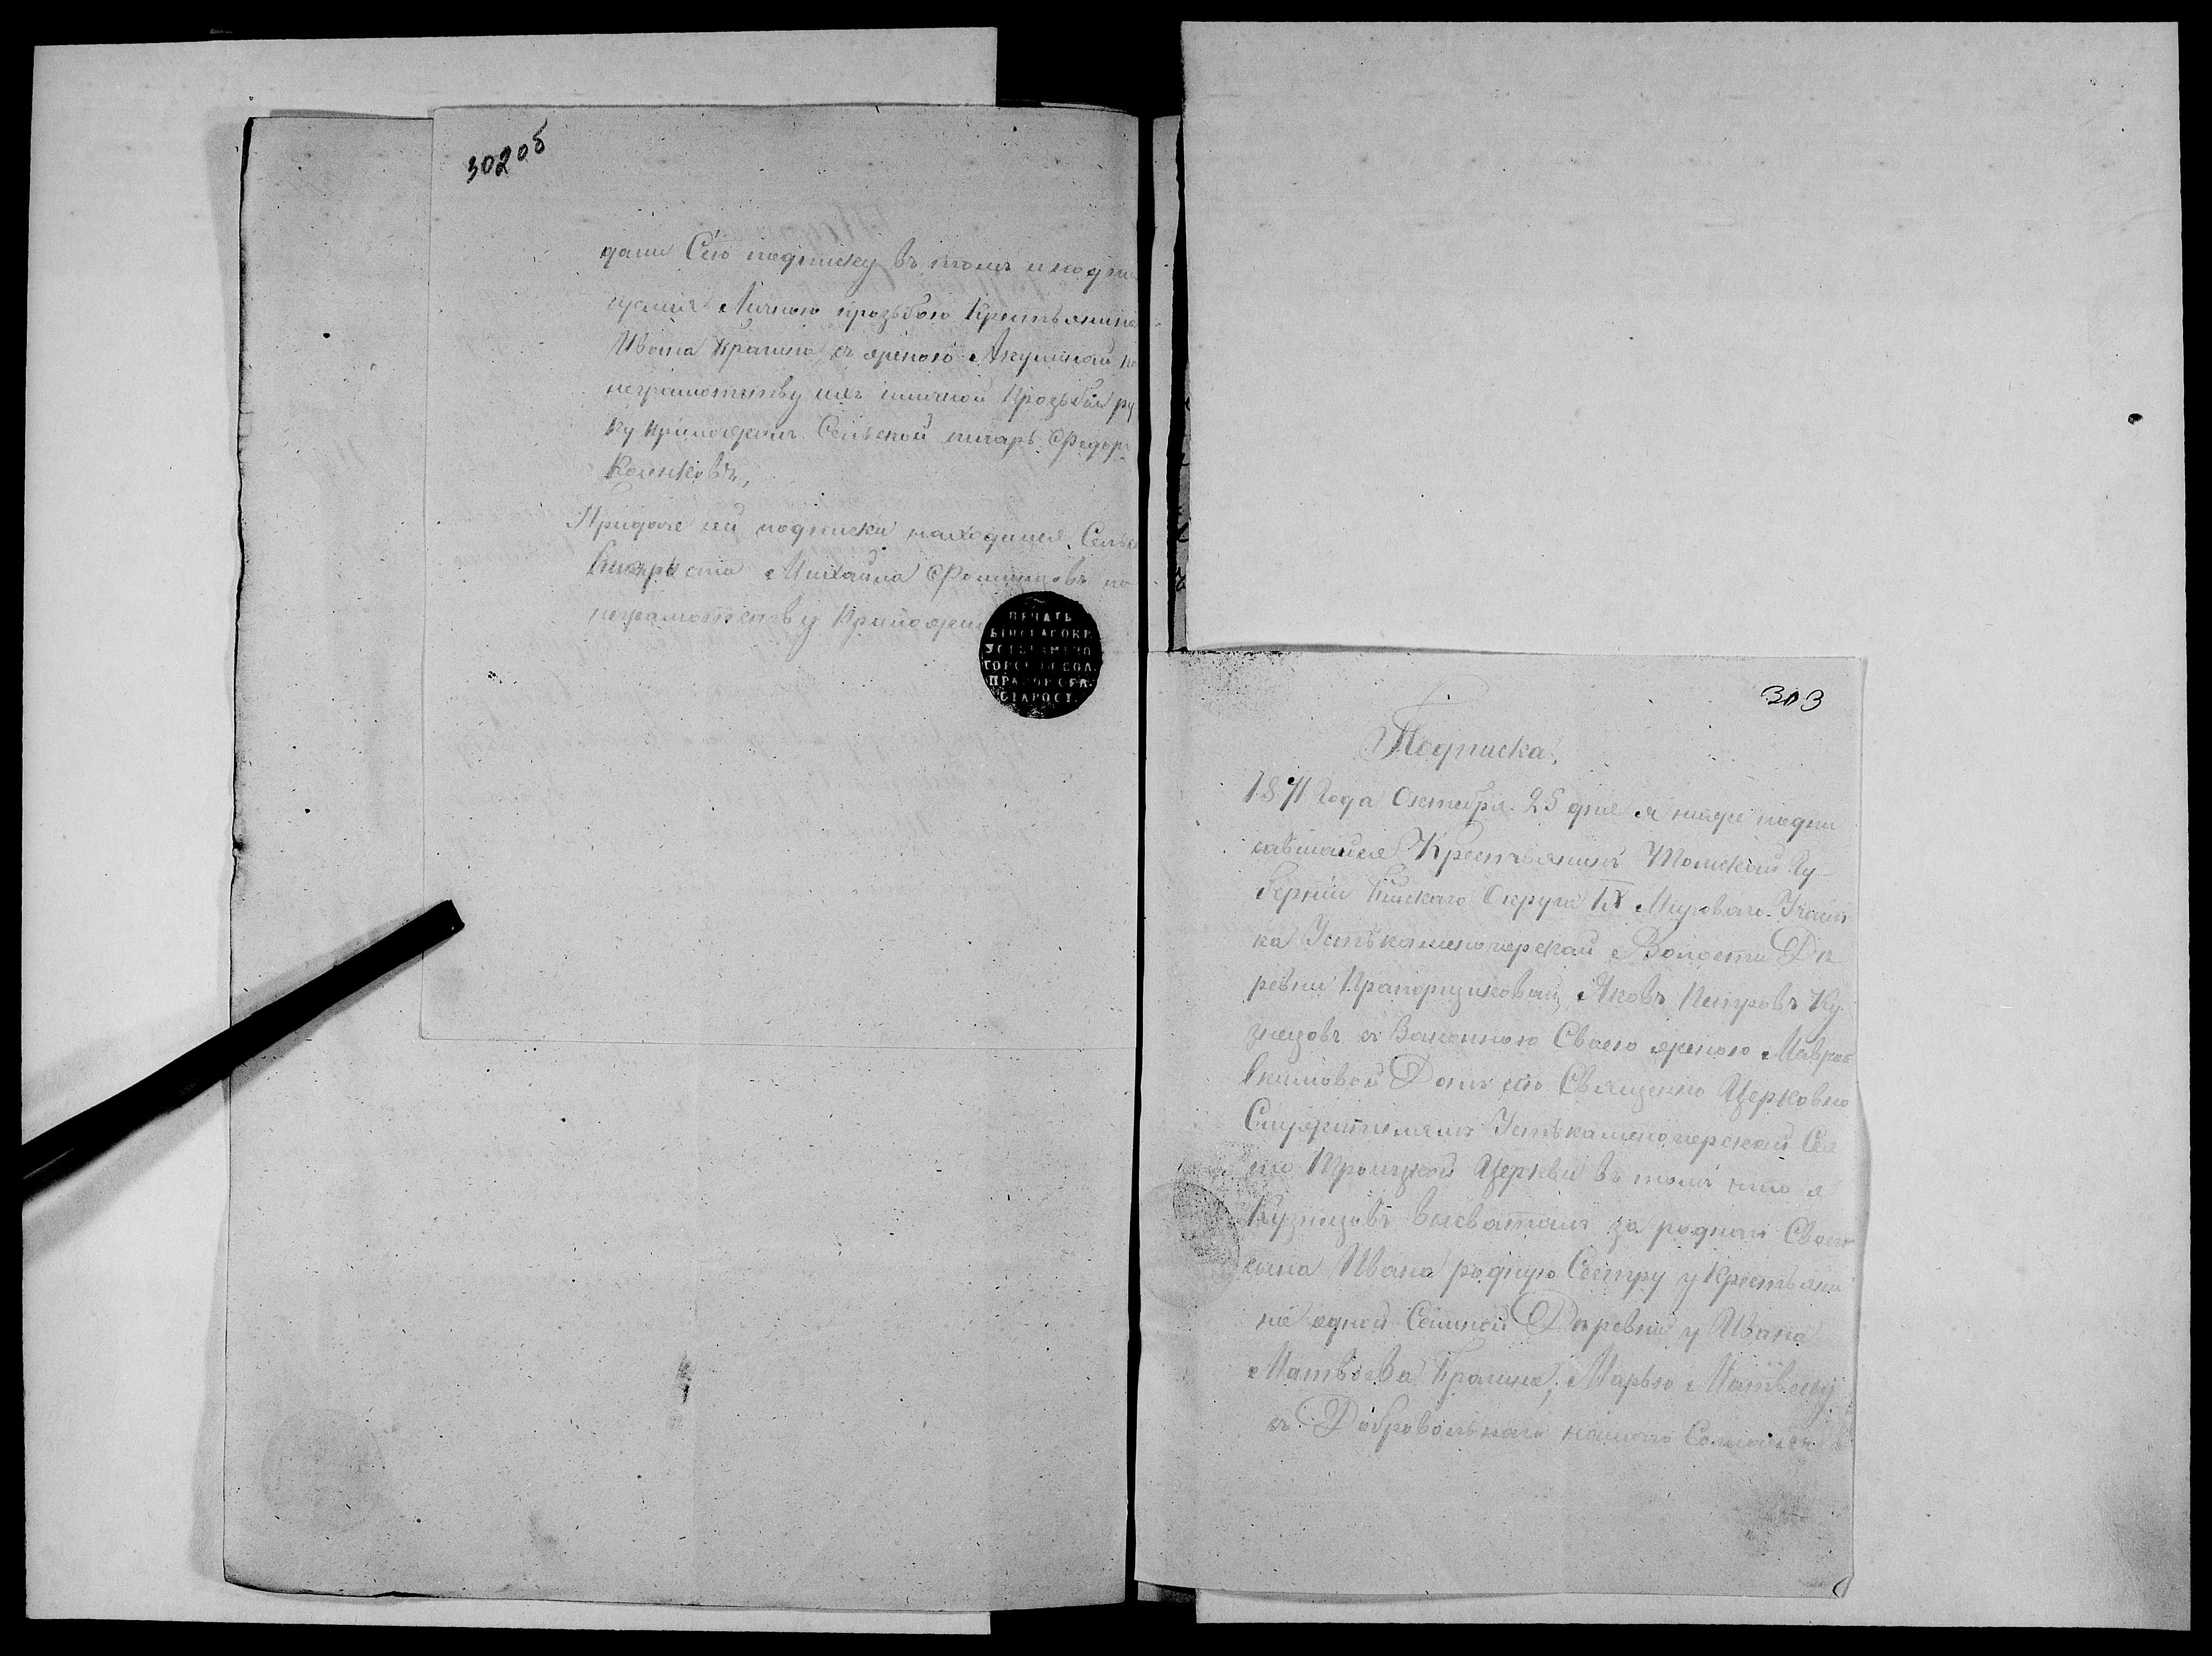 302 об
дали Сѣю подписку въ томъ и подпи
суемся Личною прозьбою Крестьянина
Ивана Крагина съ женою Акулиной по
неграмотству ихъ иличной Прозьбы ру
ку приложилъ Сельской писарь Федоръ
Коленковъ,
Придаче сей подписки находился Сельск
староста Михаила Фоминцовъ по
неграмотству Приложил
ПЕЧАТЬ
БІЙСКАГО ОКР.
УСТЬКАМЕНО
ГОРСК. ВОЛ.
ПРАПОР. СЕЛ.
СТАРОСТ.
303
Подписка,
1871 Года Октября 25 дня я ниже подпи
савшайся Крестьянинъ Томскай Гу-
берніи Бійскаго Округа IX Мироваго Участ
ка Устькаменогорскай Волости Де
ревни Прапорщиковай Яковъ Петровъ Ку
знецовъ съ Законною Своею женою Маврой
Екимовой Далъ сію Священно Церковно
Служителямъ Устькаменогорскай Свя
то Троицкой Церкви въ томъ что я
Кузнецовъ высваталъ за роднаго Своего
сына Ивана родную Сестру у Крестьяни
на едной Самной Деревни у Ивана
Матвѣева Крагина, Марью Матвѣеву
съ Добровольнаго нашаго Согласія